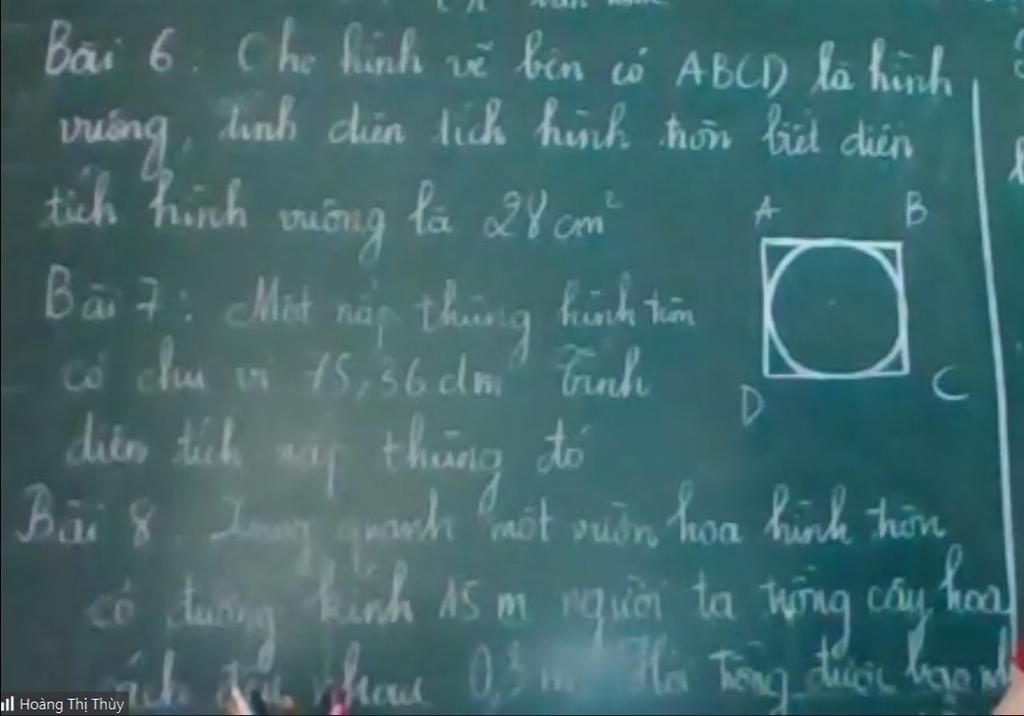 Bài 6: Cho hình vẽ bên có ABCD là hình
vuông, tính diện tích hình tròn biết diện
tích hình vuông là 28 cm²
A B
D C
Bài 7: Một nắp thùng hình tròn
có chu vi 15,36 dm Tính
diện tích nắp thùng đó
Bài 8 Xung quanh một vườn hoa hình tròn
có đường kính 15 m người ta trồng cây hoa
cách đều nhau 0,3 m Hỏi trồng được bao nh
Hoàng Thị Thùy